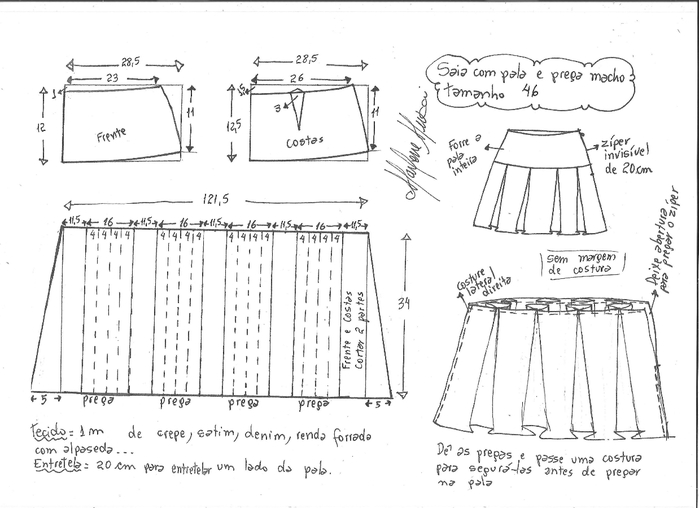 Saia com pala e prega macho
tamanho 46
28,5
23
1
12
11
Frente
28,5
26
1,5
3
12,5
11
costas
Forre a
pala
inteira
zíper
invisível
de 20cm
121,5
11,5 16 11,5 16 11,5 16 11,5 16 11,5
4 4 4 4 4 4 4 4 4 4 4 4 4 4 4 4
34
Frente e Costas
Cortar 2 partes
5 prega prega prega prega 5
sem margem
de costura
costure
lateral
direita
deixe abertura
para pregar o zíper
Tecido = 1m de crepe, setim, denim, renda forrada
com alpaseda...
Entretela = 20 cm para entretelar um lado da pala.
Dê as pregas e passe uma costura
para segurá-las antes de pregar
na pala